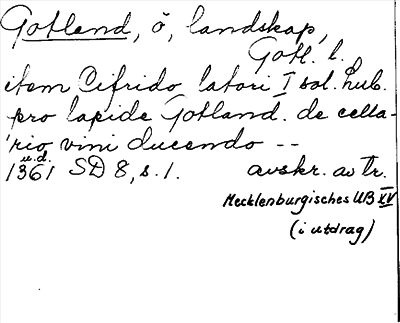 Gotland, ö, landskap,
Gotl. l.
item Cifrido latori I sol. lub.
pro lapide Gotland. de cella-
rio vini ducendo --
u.d.
1361 SD 8, s. 1. avskr. av Tr.
Mecklenburgisches UB XV
(i utdrag)